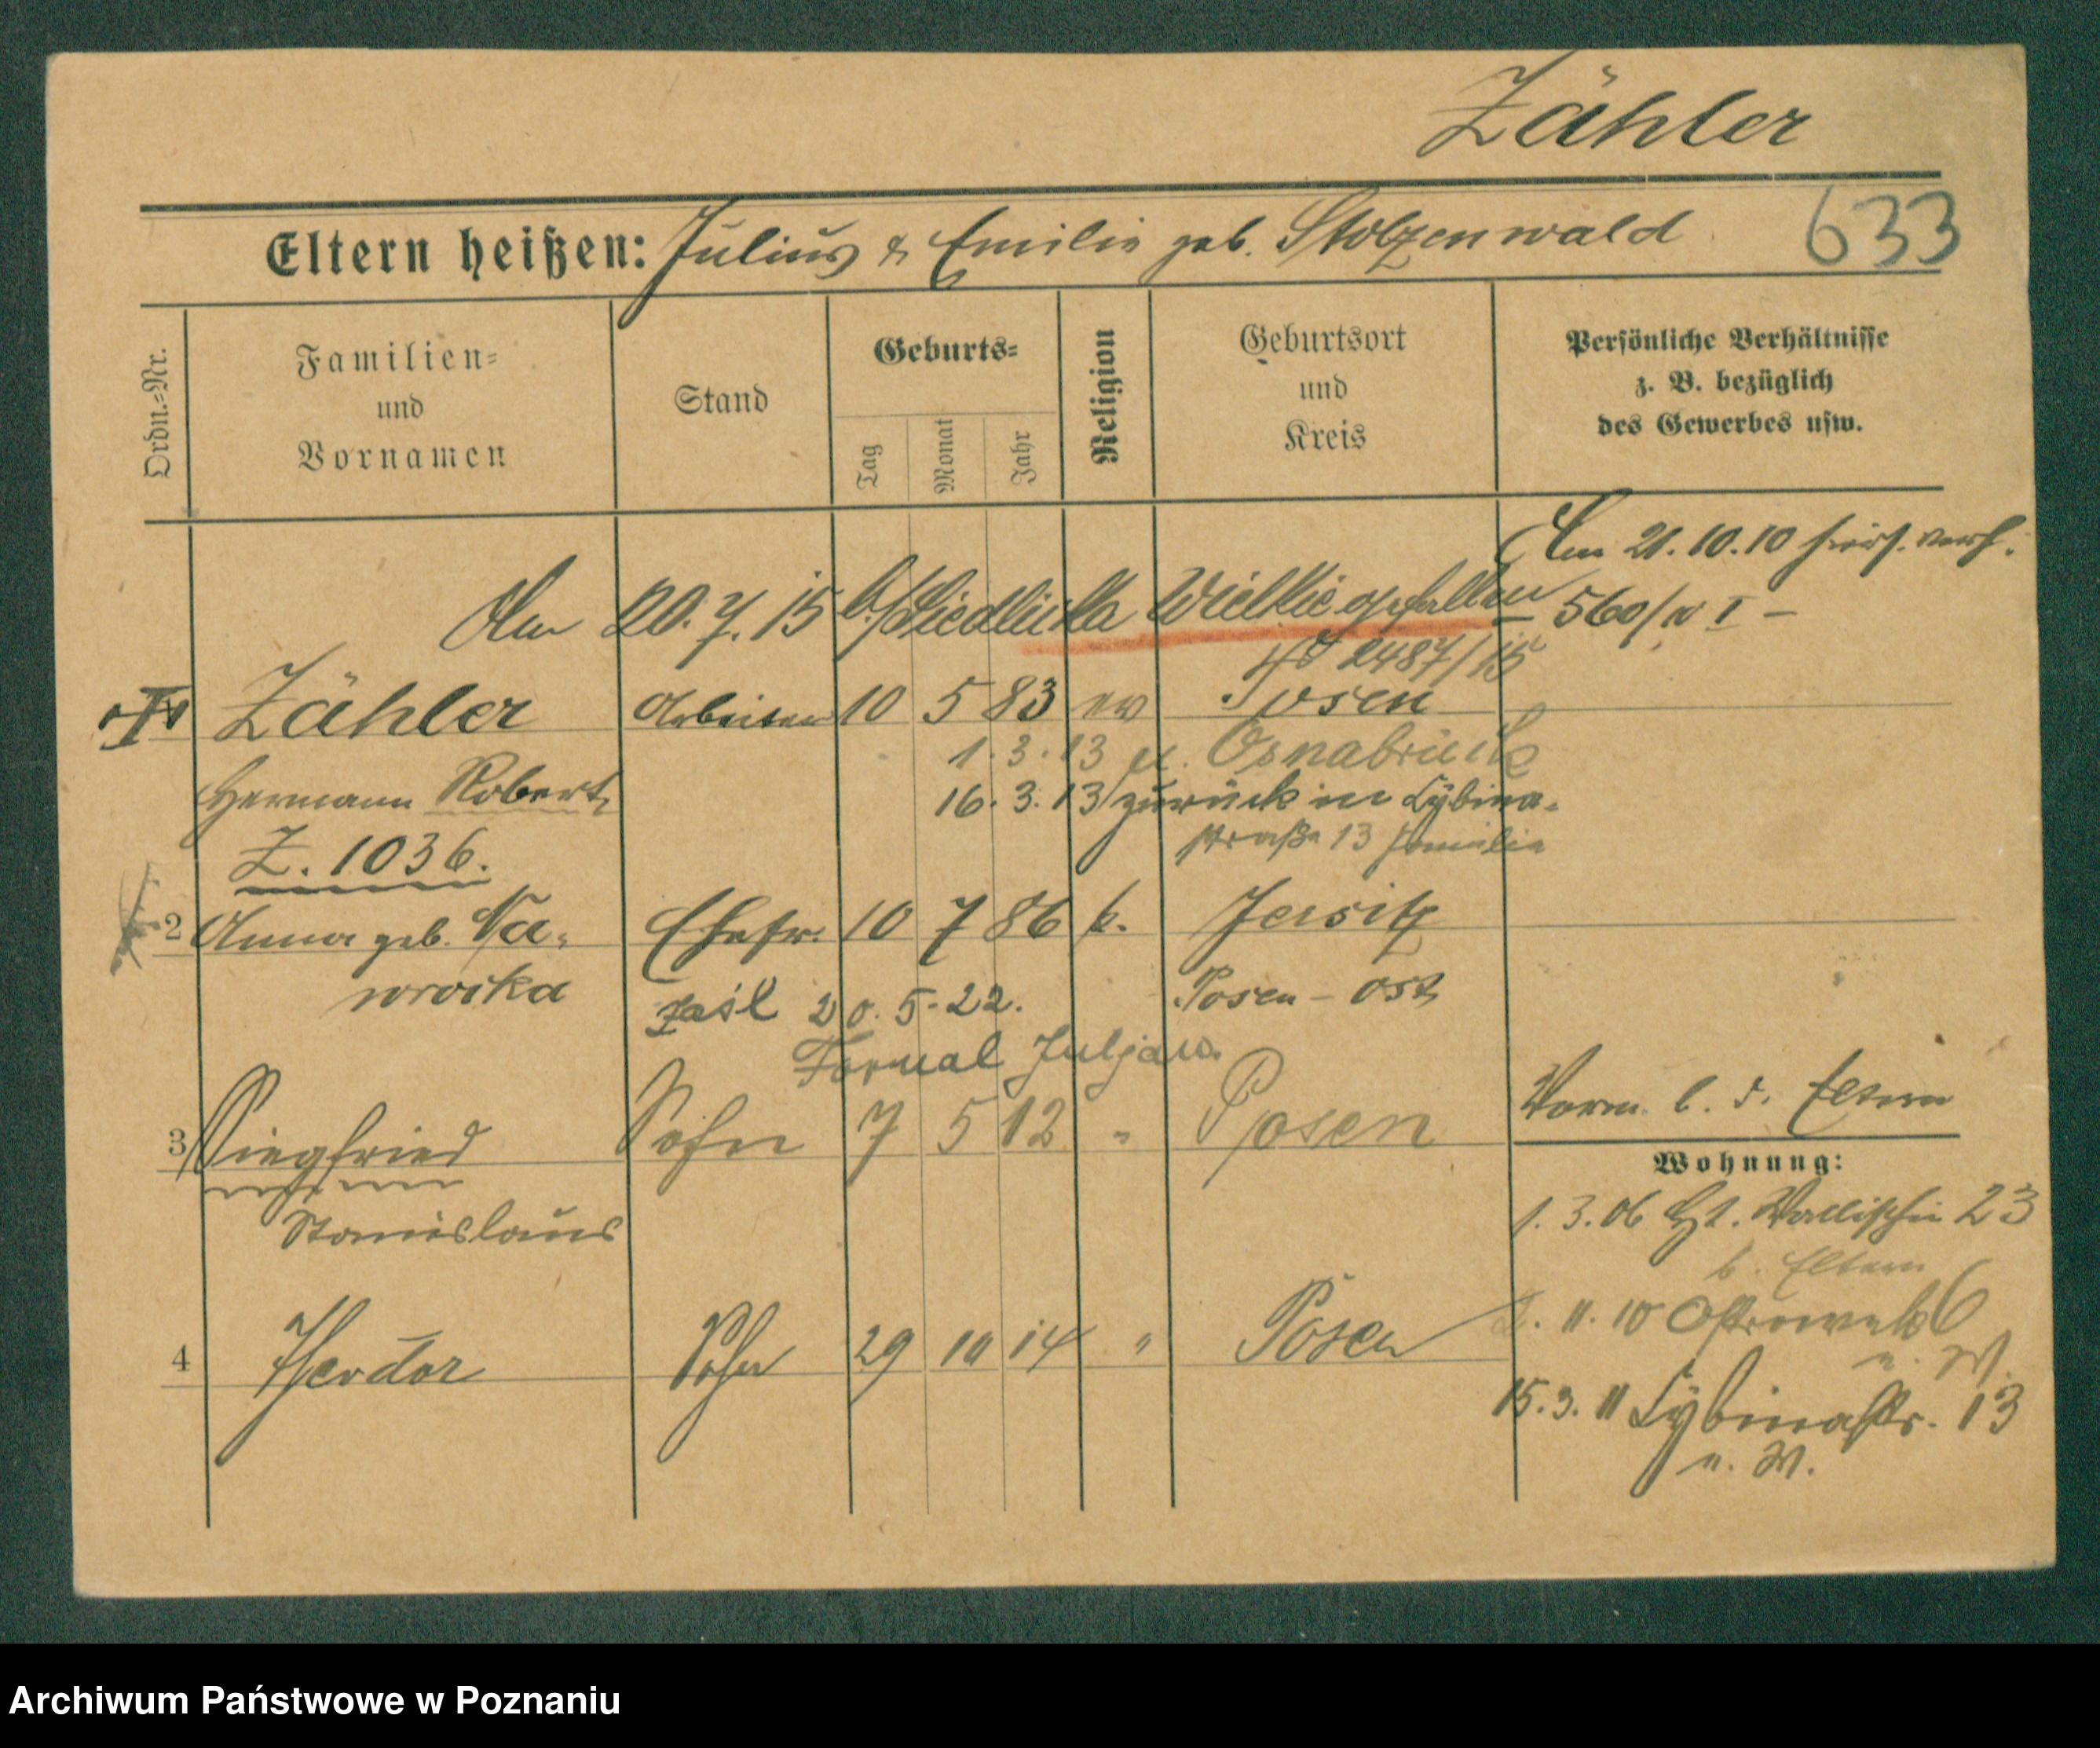 Zähler
Eltern heißen: Julius & Emilie geb. Stolzenwald 633
Ordn.-Nr.
Familien-
und
Vornamen
Stand
Geburts-
Tag
Monat
Jahr
Religion
Geburtsort
und
Kreis
Persönliche Verhältnisse
z. B. bezüglich
des Gewerbes usw.
Am 21.10.10 hier verh.
560/ I –
Am 20.7.15 b/Siedliska Wielkie gefallen
2487/15
Zähler Arbeiter 10 5 83 ev Posen
1.3.13 Osnabrück
Hermann Robert
16.3.13 zurück in Lybina-
straße 13 Familie
Z. 1036.
2 Anna geb. Na- Ehefr. 10 7 86 k. Jersitz
wrocka
Posen – Ost
20.5.22.
Juljan
3 Siegfried Sohn 7 5 12 " Posen
Stanislaus
Vorm. b. d. Eltern
Wohnung:
1.3.06 Wallischei 23
b. Eltern
11.10 Ostrowek 6
4 Theodor Sohn 29 10 14 " Posen
15.3.11 Lybinastr. 13
Archiwum Państwowe w Poznaniu